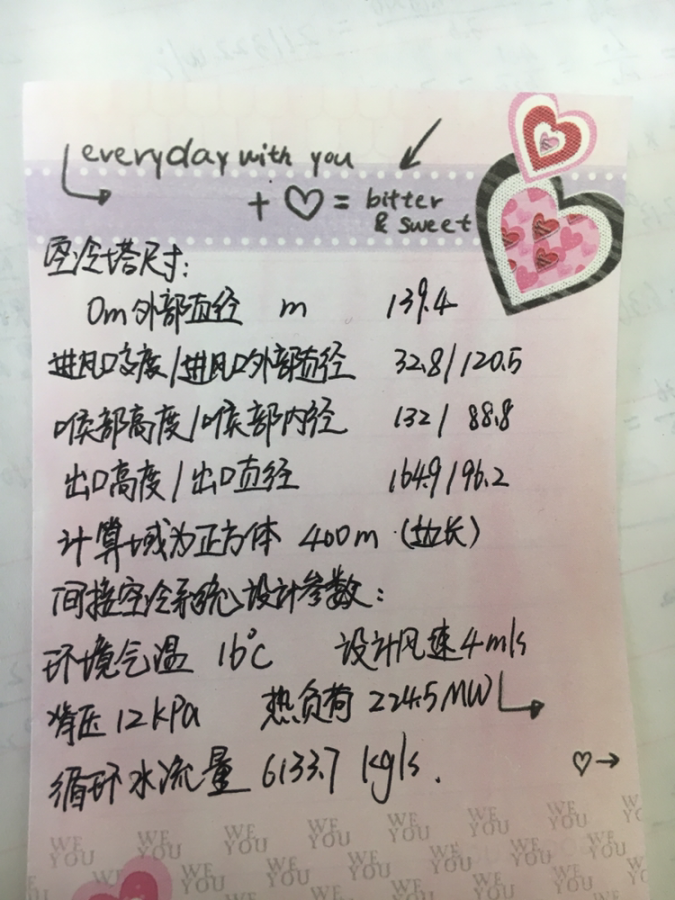 everyday with you
+ ♡ = bitter
& sweet
空冷塔尺寸:
0m外部直径 m 139.4
进风口高度/进风口外部直径 32.8/120.5
喉部高度/喉部内径 132/ 88.8
出口高度/出口直径 164.9/96.2
计算域为正方体 400m (边长)
间接空冷系统设计参数:
环境气温 16℃ 设计风速4m/s
背压12kPa 热负荷 224.5MW
循环水流量 6133.7 kg/s.
WE YOU WE YOU WE YOU WE YOU WE YOU
WE YOU WE YOU WE YOU WE YOU